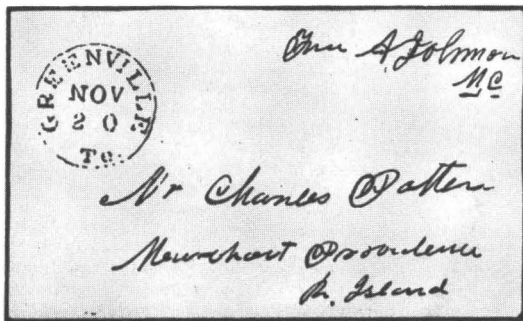 GREENVILLE
NOV
20
Te.
Free A Johnson
M.C
Mr Charles Potter
Merchant Providence
R. Island